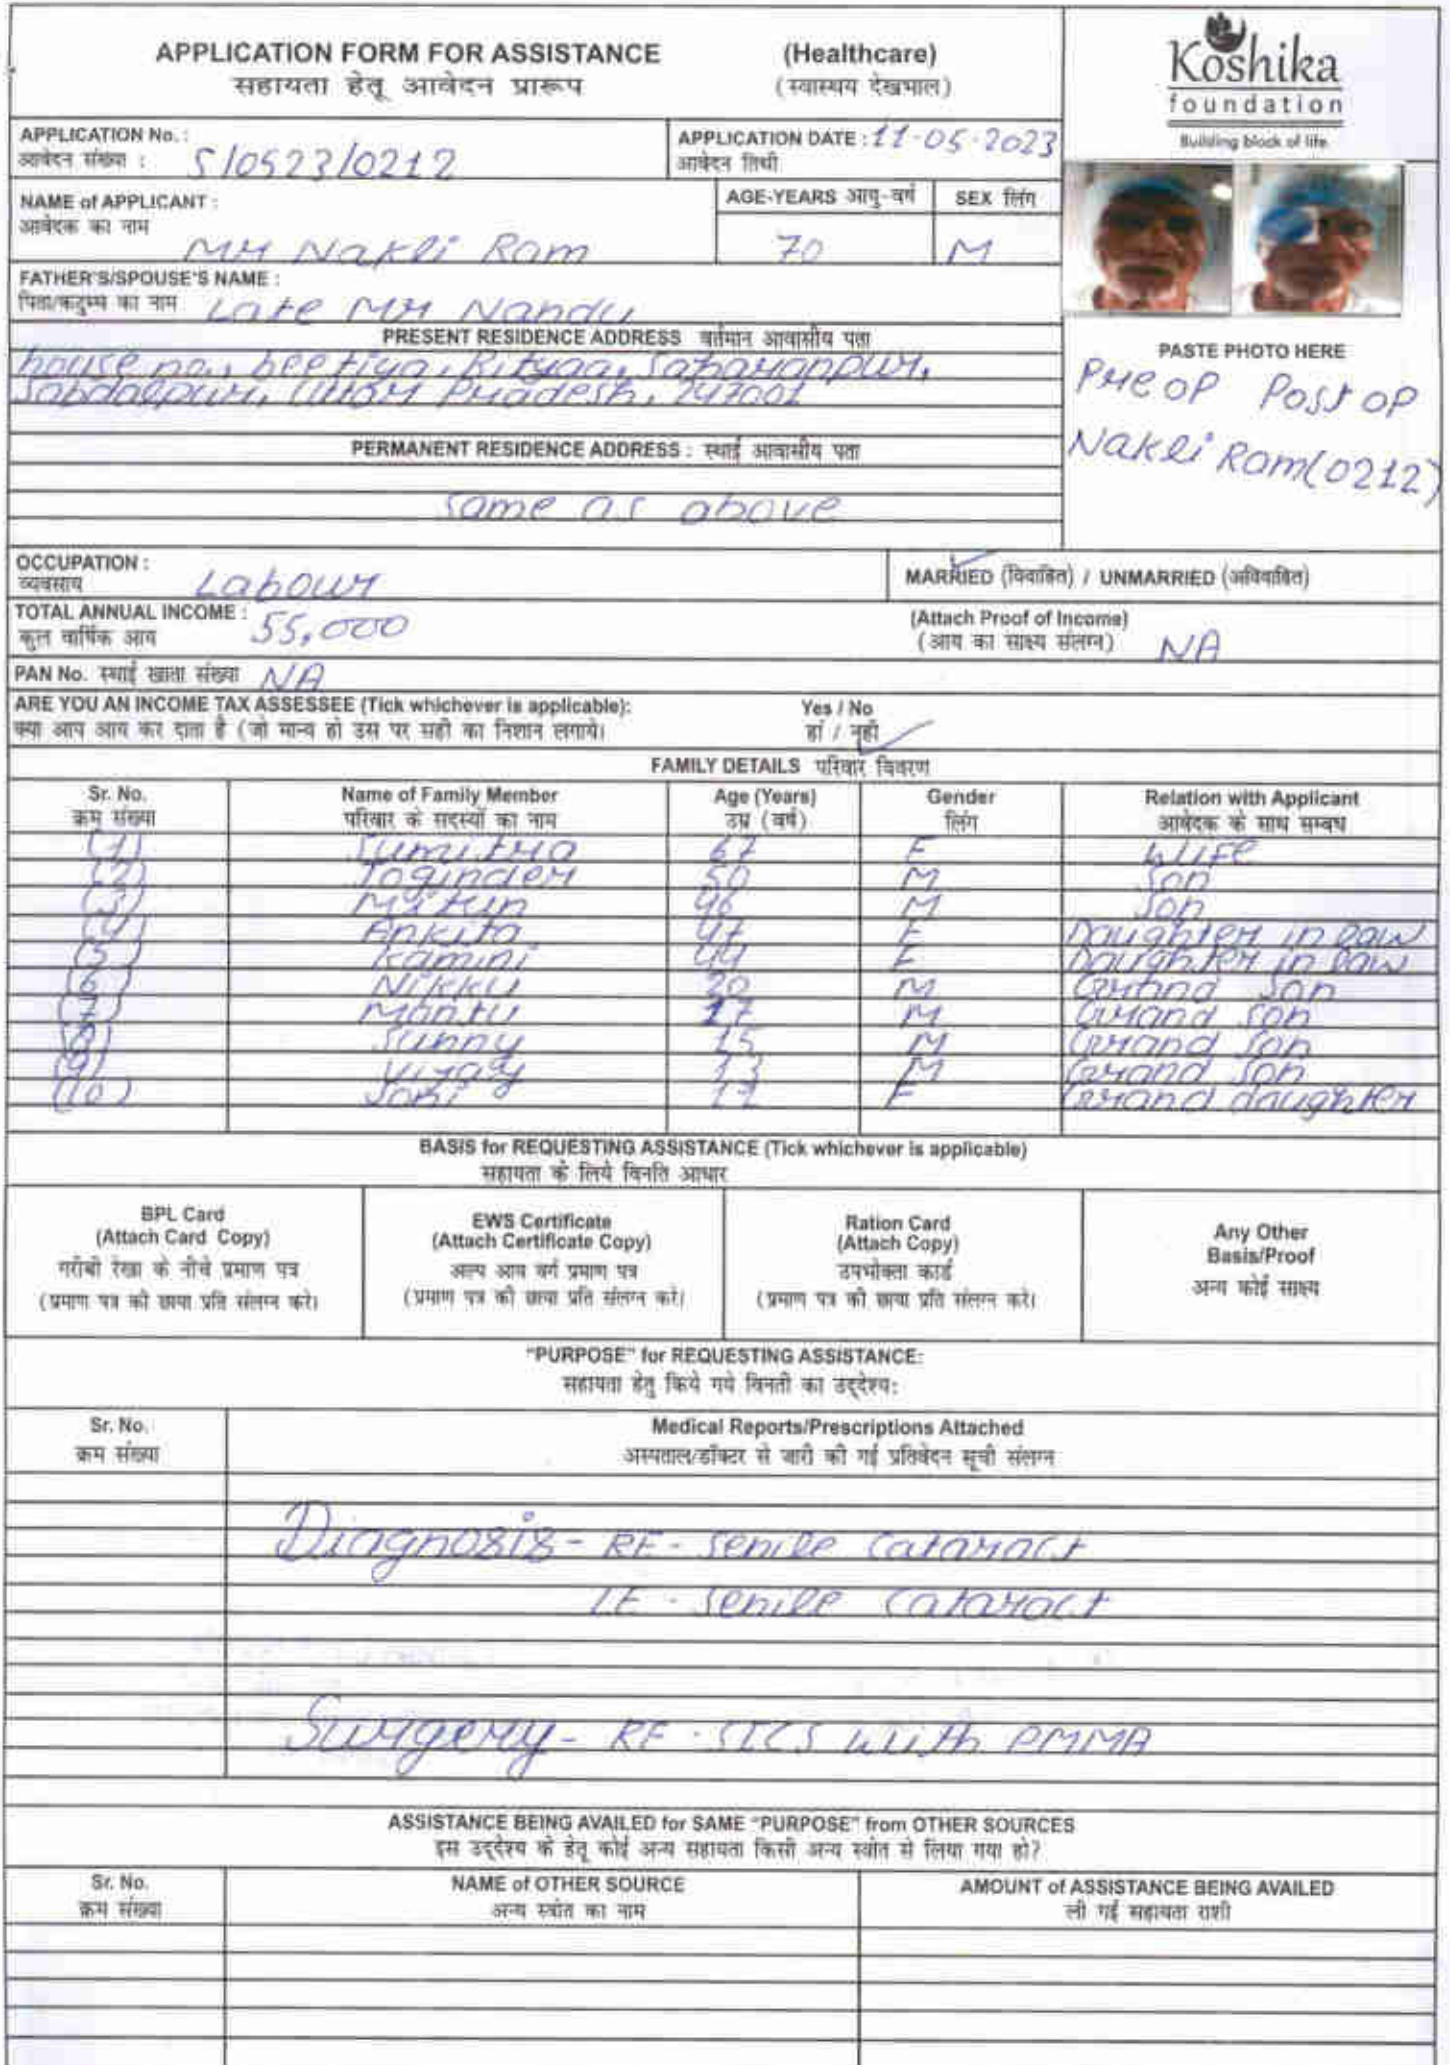 APPLICATION FORM FOR ASSISTANCE (Healthcare)
सहायता हेतू आवेदन प्रारूप (स्वास्थय देखभाल)
Koshika
foundation
Building block of life
APPLICATION No. : S/0523/0212
आवेदन संख्या :
APPLICATION DATE : 11-05-2023
आवेदन तिथी
NAME of APPLICANT :
आवेदक का नाम
Mr Nakli Ram
AGE-YEARS आयु-वर्ष
70
SEX लिंग
M
FATHER'S/SPOUSE'S NAME :
पिता/कटुम्ब का नाम Late Mr Nandu
PRESENT RESIDENCE ADDRESS वर्तमान आवासीय पता
house no., Saharanpur,
Sabdalpur, Uttar Pradesh, 247001
PERMANENT RESIDENCE ADDRESS : स्थाई आवासीय पता
same as above
PASTE PHOTO HERE
Pre OP Post OP
Nakli Ram(0212)
OCCUPATION :
व्यवसाय Labour
MARRIED (विवाहित) / UNMARRIED (अविवाहित)
TOTAL ANNUAL INCOME : 55,000
कुल वार्षिक आय
(Attach Proof of Income)
(आय का साक्ष्य संलग्न) NA
PAN No. स्थाई खाता संख्या NA
ARE YOU AN INCOME TAX ASSESSEE (Tick whichever is applicable): Yes / No
क्या आप आय कर दाता है (जो मान्य हो उस पर सही का निशान लगाये। हां / नहीं
FAMILY DETAILS परिवार विवरण
Sr. No. Name of Family Member Age (Years) Gender Relation with Applicant
क्रम संख्या परिवार के सदस्यों का नाम उम्र (वर्ष) लिंग आवेदक के साथ सम्बध
(1) Sumitra 67 F Wife
(2) Joginder 50 M Son
(3) 46 M Son
(4) Ankita 47 F Daughter in law
(5) Kamini 44 F Daughter in law
(6) Nikku 20 M Grand Son
(7) Montu 17 M Grand Son
(8) Sunny 15 M Grand Son
(9) Vijay 13 M Grand Son
(10) F Grand daughter
BASIS for REQUESTING ASSISTANCE (Tick whichever is applicable)
सहायता के लिये विनति आधार
BPL Card
(Attach Card Copy)
गरीबी रेखा के नीचे प्रमाण पत्र
(प्रमाण पत्र की छाया प्रति संलग्न करे।
EWS Certificate
(Attach Certificate Copy)
अल्प आय वर्ग प्रमाण पत्र
(प्रमाण पत्र की छाया प्रति संलग्न करे।
Ration Card
(Attach Copy)
उपभोक्ता कार्ड
(प्रमाण पत्र की छाया प्रति संलग्न करे।
Any Other
Basis/Proof
अन्य कोई साक्ष्य
"PURPOSE" for REQUESTING ASSISTANCE:
सहायता हेतु किये गये विनती का उद्देश्य:
Sr. No. Medical Reports/Prescriptions Attached
क्रम संख्या अस्पताल/डॉक्टर से जारी की गई प्रतिवेदन सूची संलग्न
Diagnosis - RE - Senile Cataract
LE - Senile Cataract
Surgery - RE - SICS with PMMA
ASSISTANCE BEING AVAILED for SAME "PURPOSE" from OTHER SOURCES
इस उद्देश्य के हेतू कोई अन्य सहायता किसी अन्य स्त्रोत से लिया गया हो?
Sr. No. NAME of OTHER SOURCE AMOUNT of ASSISTANCE BEING AVAILED
क्रम संख्या अन्य स्त्रोत का नाम ली गई सहायता राशी